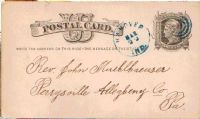 POSTAL CARD.
WRITE THE ADDRESS ON THIS SIDE - THE MESSAGE ON THE OTHER
MAR
IND.
Rev. John Kuehlhaeuser
Perrysville Allegheny Co.
Pa.